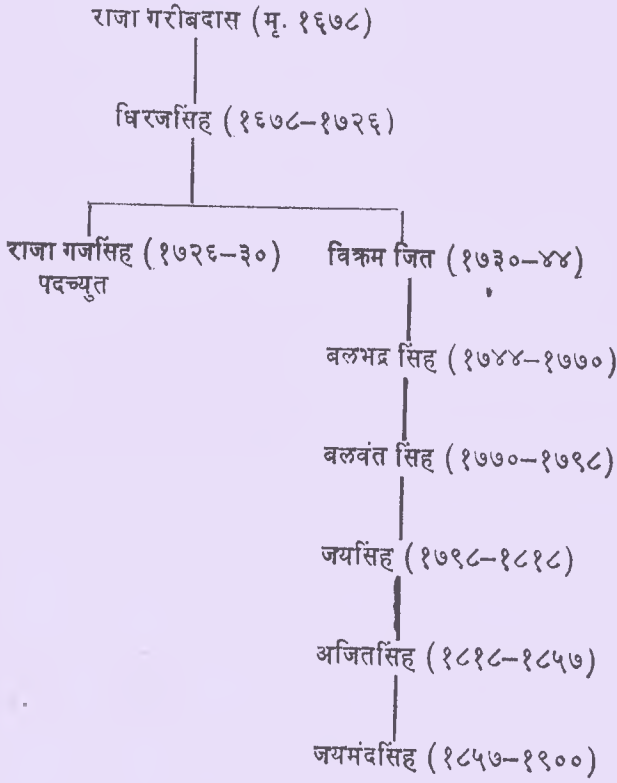 राजा गरीबदास (मृ. १६७८)
धिरजसिंह (१६७८–१७२६)
राजा गजसिंह (१७२६–३०)
पदच्युत
विक्रम जित (१७३०–४४)
बलभद्र सिंह (१७४४–१७७०)
बलवंत सिंह (१७७०–१७९८)
जयसिंह (१७९८–१८१८)
अजितसिंह (१८१८–१८५७)
जयमंदसिंह (१८५७–१९००)